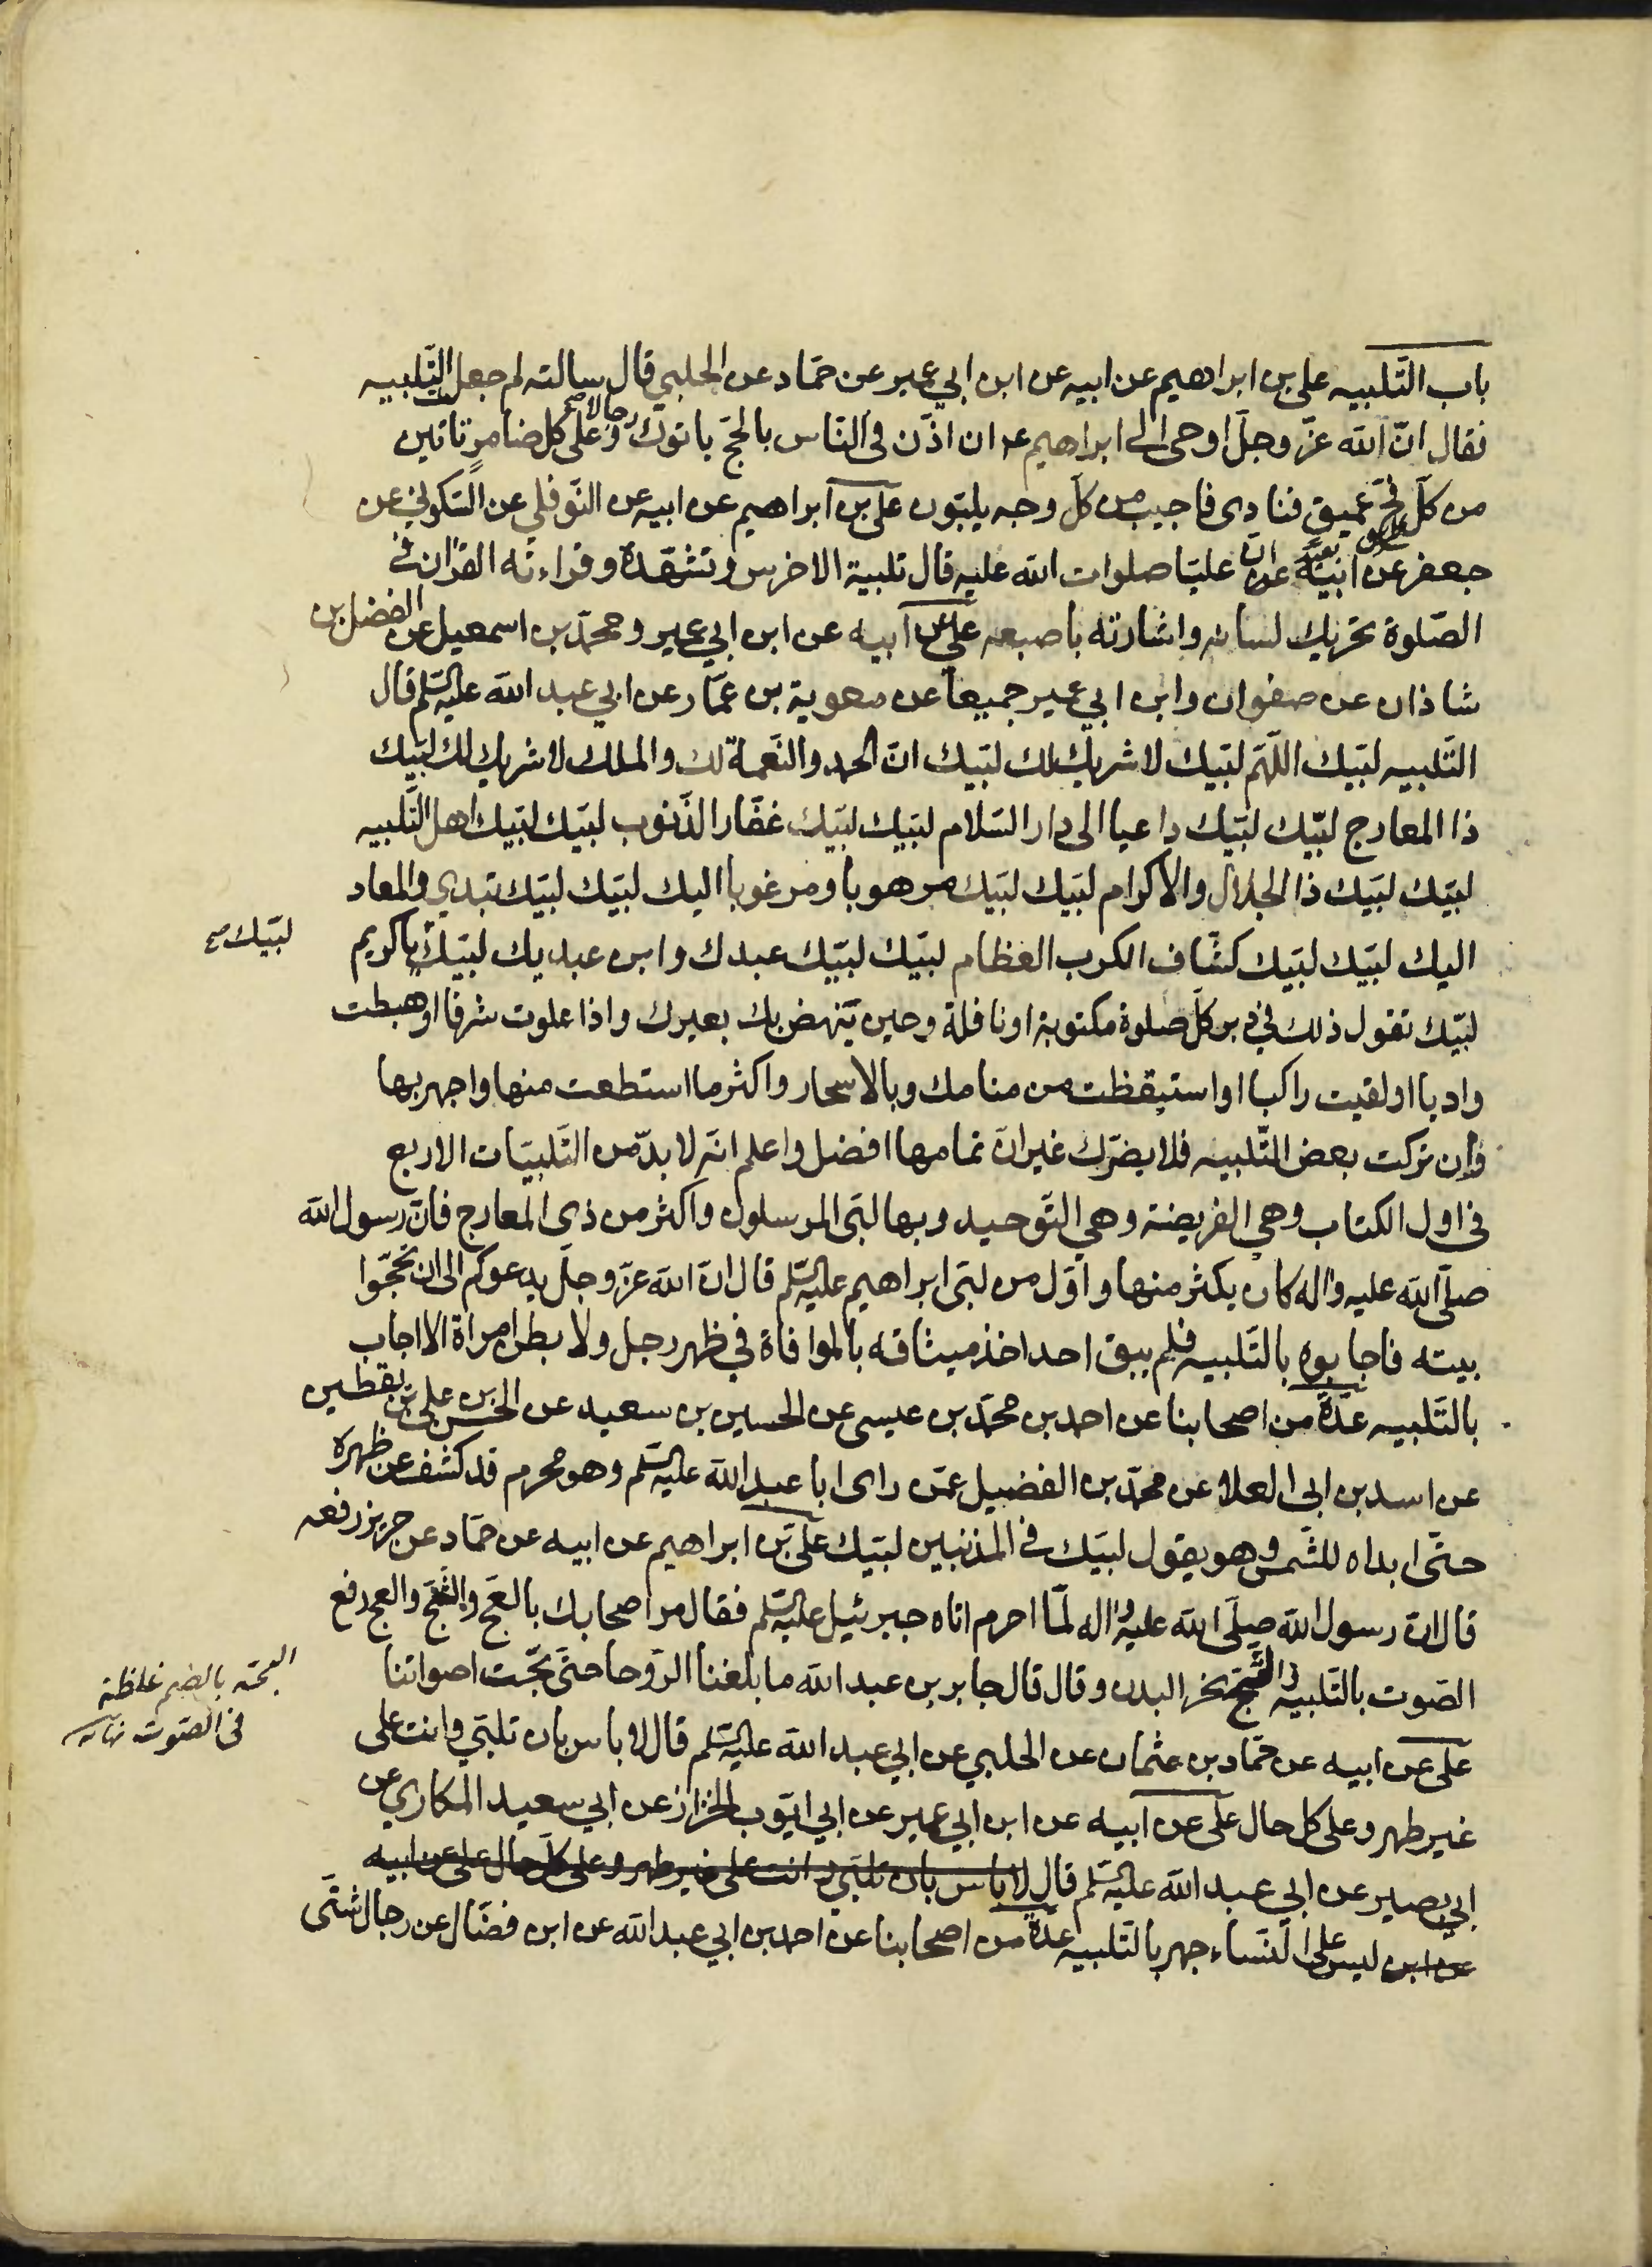 باب التّلبيه علي بن ابراهيم عن ابيه عن ابن ابي عمير عن حمّاد عن الحلبي قال سالته لم جعل التّلبيه
فقال انّ الله عزّ وجلّ اوحى الى ابراهيم ع ان اذّن فى النّاس بالحجّ ياتوك رجالا وعلى كل ضامر تاتين
من كلّ فجّ عميق فنادى فاجيب من كلّ وجه يلبّون علي بن ابراهيم عن ابيه عن النّوفلي عن السّكوني عن
جعفر عن انّ عليّا صلوات الله عليه قال تلبية الاخرس وتشهّده وقراءته القران في
الصّلوة تحريك لسانه واشارته باصبعه علي عن ابيه عن ابن ابي عمير ومحمّد بن اسمعيل عن الفضل بن
شاذان عن صفوان وابن ابي عمير جميعا عن معوية بن عمّار عن ابي عبد الله عليه السّلم قال
التّلبيه لبّيك اللّهمّ لبّيك لا شريك لك لبّيك انّ الحمد والنّعمة لك والملك لا شريك لك لبّيك
ذا المعارج لبّيك لبّيك داعيا الى دار السّلام لبّيك لبّيك غفّار الذّنوب لبّيك لبّيك اهل التّلبيه
لبّيك لبّيك ذا الجلال والاكرام لبّيك لبّيك مرهوبا ومرغوبا اليك لبّيك لبّيك تبدي والمعاد
اليك لبّيك لبّيك كشّاف الكرب العظام لبّيك لبّيك عبدك وابن عبديك لبّيك ياكريم
لبّيك صح
لبّيك تقول ذلك في دبر كلّ صلوة مكتوبة او نافلة وحين ينهض بك بعيرك واذا علوت شرفا او هبطت
واديا او لقيت راكبا او استيقظت من منامك وبالاسحار واكثر ما استطعت منها واجهر بها
وإن تركت بعض التّلبيه فلا يضرّك غير انّ تمامها افضل واعلم انّه لا بدّ من التّلبيات الاربع
فى اول الكتاب وهي الفريضة وهي التّوحيد وبها لبّى المرسلون واكثر من ذى المعارج فانّ رسول الله
صلّى الله عليه واله كان يكثر منها واوّل من لبّى ابراهيم عليه السّلم قال انّ الله عزّ وجلّ يدعوكم الى ان تحجّوا
بيته فاجابوه بالتّلبيه فلم يبق احد اخذ ميثاقه بالموافاة في ظهر رجل ولا بطن امراة الا اجاب
بالتّلبيه عدّة من اصحابنا عن احمد بن محمّد بن عيسى عن الحسين بن سعيد عن الحسن بن علي بن يقطين
عن اسد بن ابى العلا عن محمّد بن الفضيل عمّن راى ابا عبد الله عليه السّلم وهو محرم قد كشف عن ظهره
حتّى ابداه للشّمس وهو يقول لبّيك فى المذنبين لبّيك علي بن ابراهيم عن ابيه عن حمّاد عن حريز رفعه
قال انّ رسول الله صلّى الله عليه واله لمّا احرم اتاه جبرئيل عليه السّلم فقال مر اصحابك بالعجّ والثّجّ والعج رفع
الصّوت بالتّلبيه والثّجّ نحر البدن وقال قال جابر بن عبد الله ما بلغنا الرّوحا حتّى بحّت اصواتنا
البحّه بالضم غلظة
فى الصّوت نهايه
علي عن ابيه عن حمّاد بن عثمان عن الحلبي عن ابي عبد الله عليه السّلم قال لا باس بان تلبّي وانت على
غير طهر وعلى كل حال علي عن ابيه عن ابن ابي عمير عن ابي ايّوب الخزاز عن ابي سعيد المكاري عن
ابي بصير عن ابي عبد الله عليه السّلم قال لا باس بان تلبّي وانت على غير طهر وعلى كلّ حال علي عن ابيه
عن ابن ليس على النّساء جهر بالتّلبيه عدّة من اصحابنا عن احمد بن ابي عبد الله عن ابن فضّال عن رجال شتّى